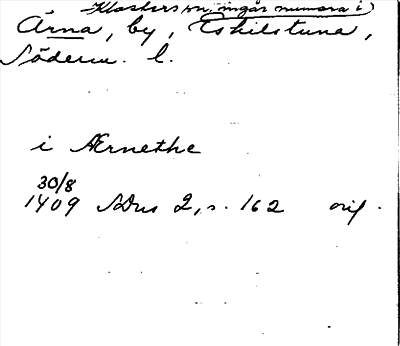 Klosters sn, ingår numera i
Ärna, by, Eskilstuna,
Söderm. l.
i Ærnethe
30/8
1409 SDns 2, s. 162 orig.